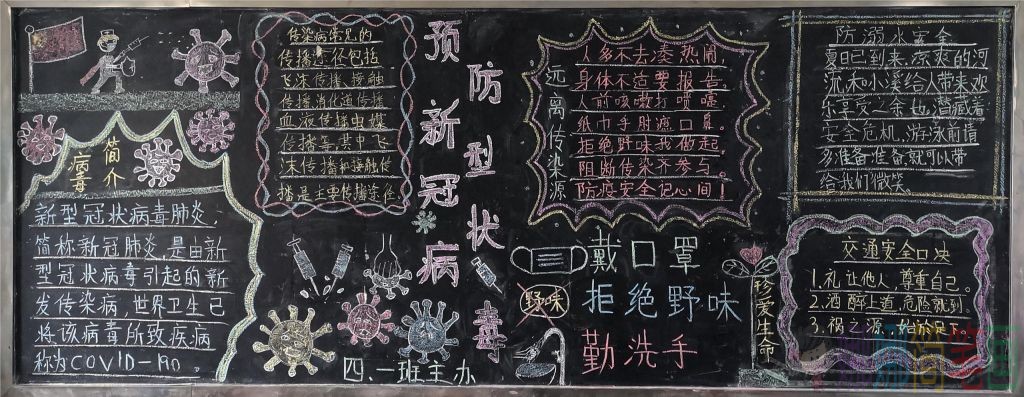 病毒
简介
新型冠状病毒肺炎
简称新冠肺炎,是由新
型冠状病毒引起的新
发传染病,世界卫生已
将该病毒所致疾病
称为COVID-190。
传染病常见的
传播途径包括
飞沫传播、接触
传播消化道传播
血液传播虫媒
传播等其中飞
沫传播和接触传
播是主要传播途径。
四、一班主办
预防新型冠状病毒
远离传染源
人多不去凑热闹,
身体不适要报告。
人前咳嗽打喷嚏
纸巾手肘遮口鼻。
拒绝野味我做起
阻断传染齐参与。
防疫安全记心间!
戴口罩
野味
拒绝野味
勤洗手
珍爱生命
防溺水安全
夏日已到来,凉爽的河
流、来小溪给人带来欢
乐享受之余也潜藏着
安全危机,游泳前请
多准备准备,就可以带
给我们微笑
交通安全口决
1.礼让他人,尊重自己。
2.酒醉上道,危险就到。
3.祸之源,始於足下。